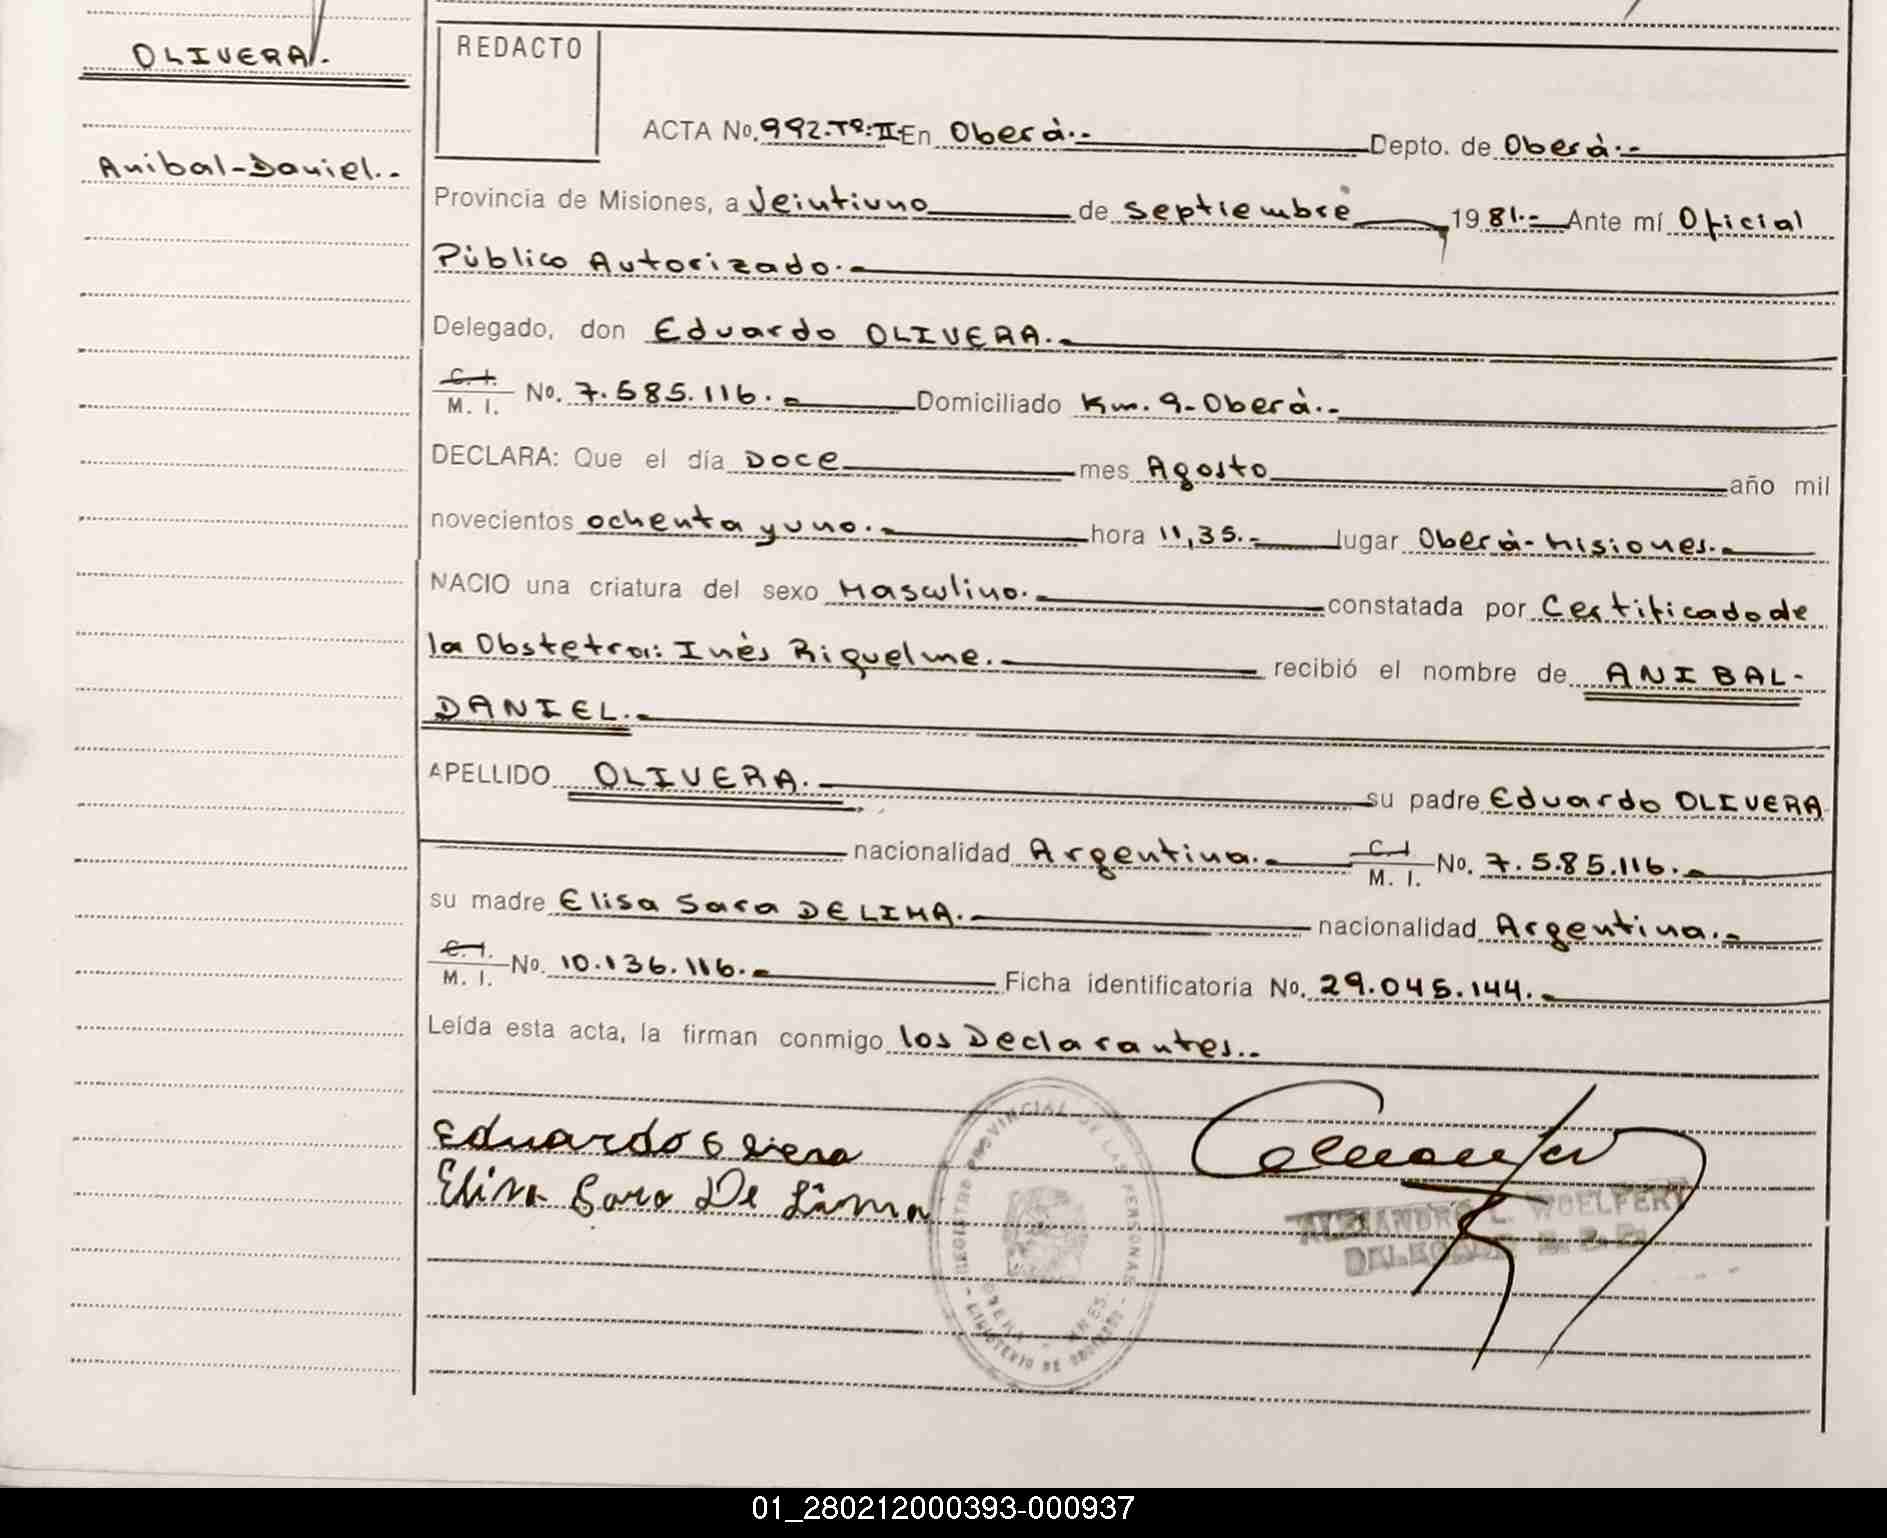 OLIVERA.
Anibal-Daniel.-
REDACTO
ACTA No. 992.Tº:II En Oberá.- Depto. de Oberá.-
Provincia de Misiones, a Veintiuno de septiembre 1981.- Ante mí Oficial
Público Autorizado.-
Delegado, don Eduardo OLIVERA.-
C. I. / M. I. No. 7.585.116.- Domiciliado Km. 9-Oberá.-
DECLARA: Que el día Doce mes Agosto año mil
novecientos ochenta y uno.- hora 11,35.- lugar Oberá-Misiones.-
NACIO una criatura del sexo Masculino.- constatada por Certificado de
la Obstetra: Inés Riquelme.- recibió el nombre de ANIBAL-
DANIEL.-
APELLIDO OLIVERA.- su padre Eduardo OLIVERA
nacionalidad Argentina.- C. I. / M. I. No. 7.585.116.-
su madre Elisa Sara DE LIMA.- nacionalidad Argentina.-
C. I. / M. I. No. 10.136.116.- Ficha identificatoria No. 29.045.144.-
Leída esta acta, la firman conmigo los Declarantes.-
Eduardo Olivera
Elisa Sara De Lima
REGISTRO PROVINCIAL DE LAS PERSONAS
MINISTERIO DE GOBIERNO
ALEJANDRO L. WOELFERT
01_280212000393-000937